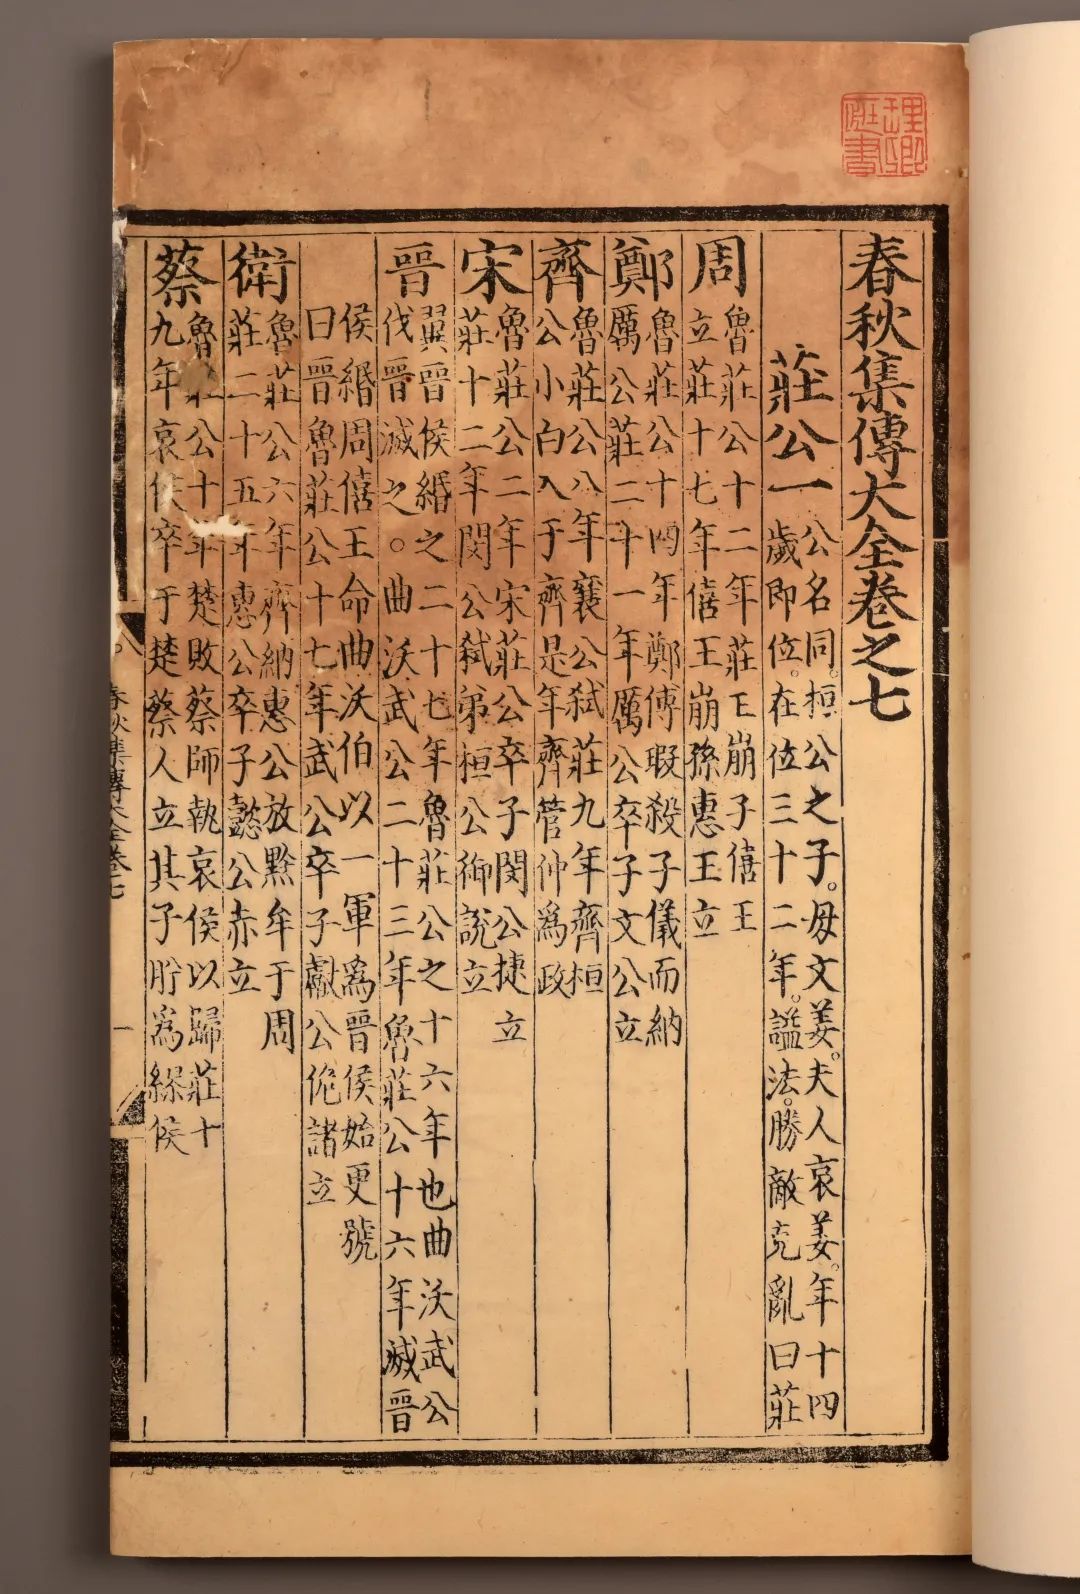 春秋集傳大全卷之七
莊公一
公名同。桓公之子。母文姜。夫人哀姜。年十四
歲即位。在位三十二年。謚法。勝敵克亂曰莊
周
魯莊公十二年莊王崩子僖王
立莊十七年僖王崩孫惠王立
鄭
魯莊公十四年鄭傅暇殺子儀而納
厲公莊二十一年厲公卒子文公立
齊
魯莊公八年襄公弒莊九年齊桓
公小白入于齊是年齊管仲爲政
宋
魯莊公二年宋莊公卒子閔公捷立
莊十二年閔公弒弟桓公御說立
晉
翼晉侯緡之二十七年魯莊公之十六年也曲沃武公
伐晉滅之。曲沃武公二十三年魯莊公十六年滅晉
侯緡周僖王命曲沃伯以一軍爲晉侯始更號
曰晉魯莊公十七年武公卒子獻公佹諸立
衛
魯莊公六年齊納惠公放黔牟于周
莊二十五年惠公卒子懿公赤立
蔡
魯莊公十年楚敗蔡師執哀侯以歸莊十
九年哀侯卒于楚蔡人立其子肸爲繆侯
春秋集傳大全卷七
一